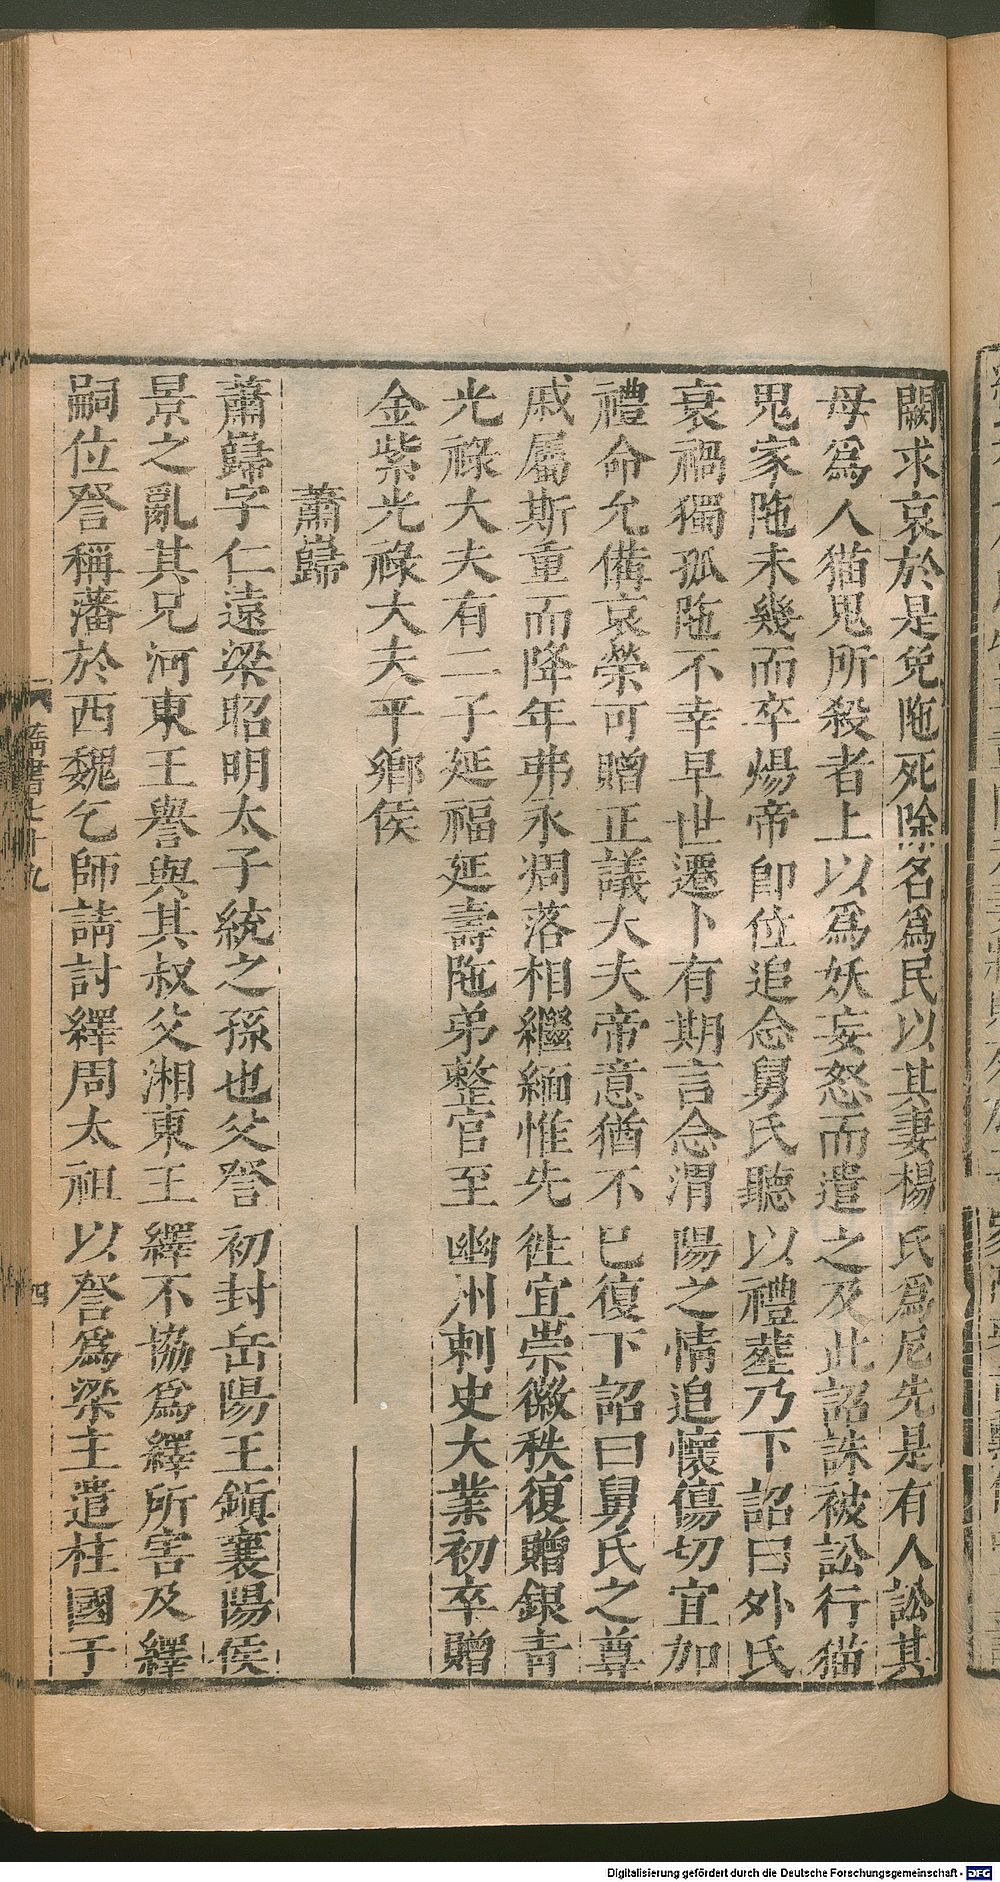 闕求哀於是免陁死除名爲民以其妻楊氏爲尼先是有人訟其
母爲人猫鬼所殺者上以爲妖妄怒而遣之及此詔誅被訟行猫
鬼家陁未幾而卒煬帝卽位追念舅氏聽以禮葬乃下詔曰外氏
衰禍獨孤陁不幸早世遷卜有期言念渭陽之情追懷傷切宜加
禮命允備哀榮可贈正議大夫帝意猶不已復下詔曰舅氏之尊
戚屬斯重而降年弗永凋落相繼緬惟先徃宜崇徽秩復贈銀青
光祿大夫有二子延福延壽陁弟整官至幽州刺史大業初卒贈
金紫光祿大夫平鄉侯
蕭巋
蕭巋字仁遠梁昭明太子統之孫也父詧初封岳陽王鎭襄陽侯
景之亂其兄河東王譽與其叔父湘東王繹不協爲繹所害及繹
嗣位詧稱藩於西魏乞師請討繹周太祖以詧爲梁主遣柱國于
隋書七十九
四
Digitalisierung gefördert durch die Deutsche Forschungsgemeinschaft - DFG